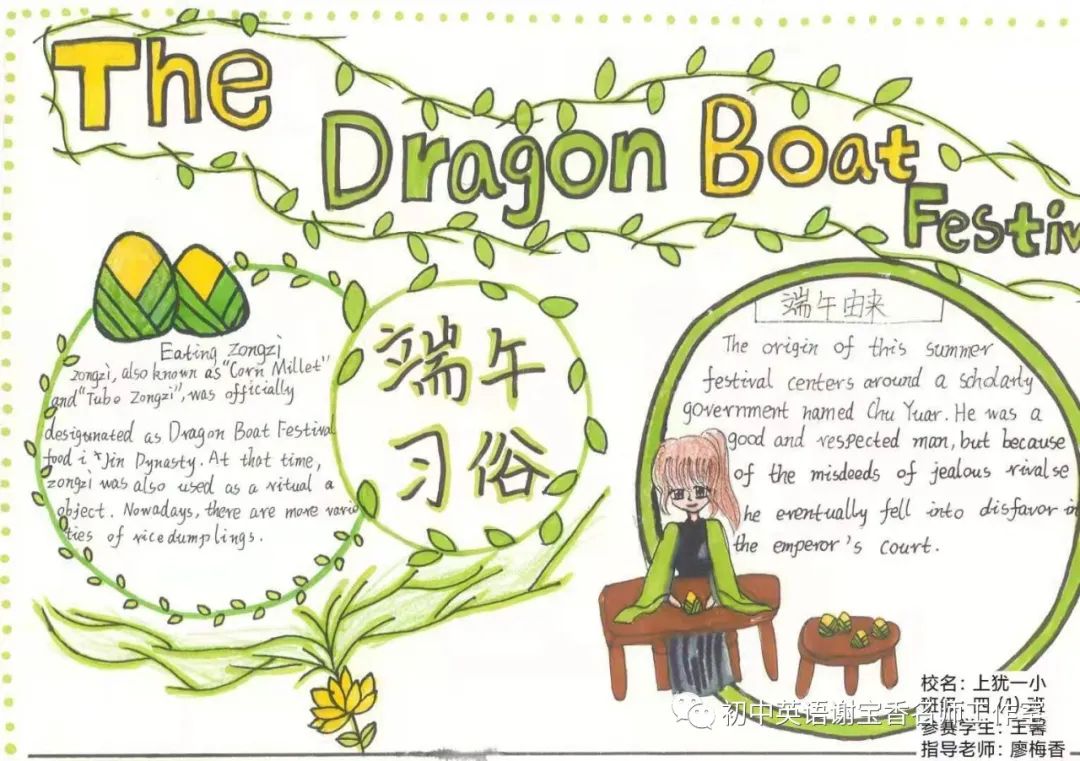 The
Dragon Boat
Festiv
端午由来
Eating Zongzi
zongzi, also known as "Corn Millet"
and "Tube Zongzi", was officially
designated as Dragon Boat Festival
food i Jin Dynasty. At that time,
zongzi was also used as a ritual a
object. Nowadays, there are more varie
ties of rice dumplings.
端午
习俗
The origin of this summer
festival centers around a scholarly
government named Chu Yuar. He was a
good and respected man, but because
of the misdeeds of jealous rivalse
he eventually fell into disfavor in
the emperor's court.
校名：上犹一小
班级：四（1）班
参赛学生：王
指导老师：廖梅香
初中英语谢宝香名师工作室